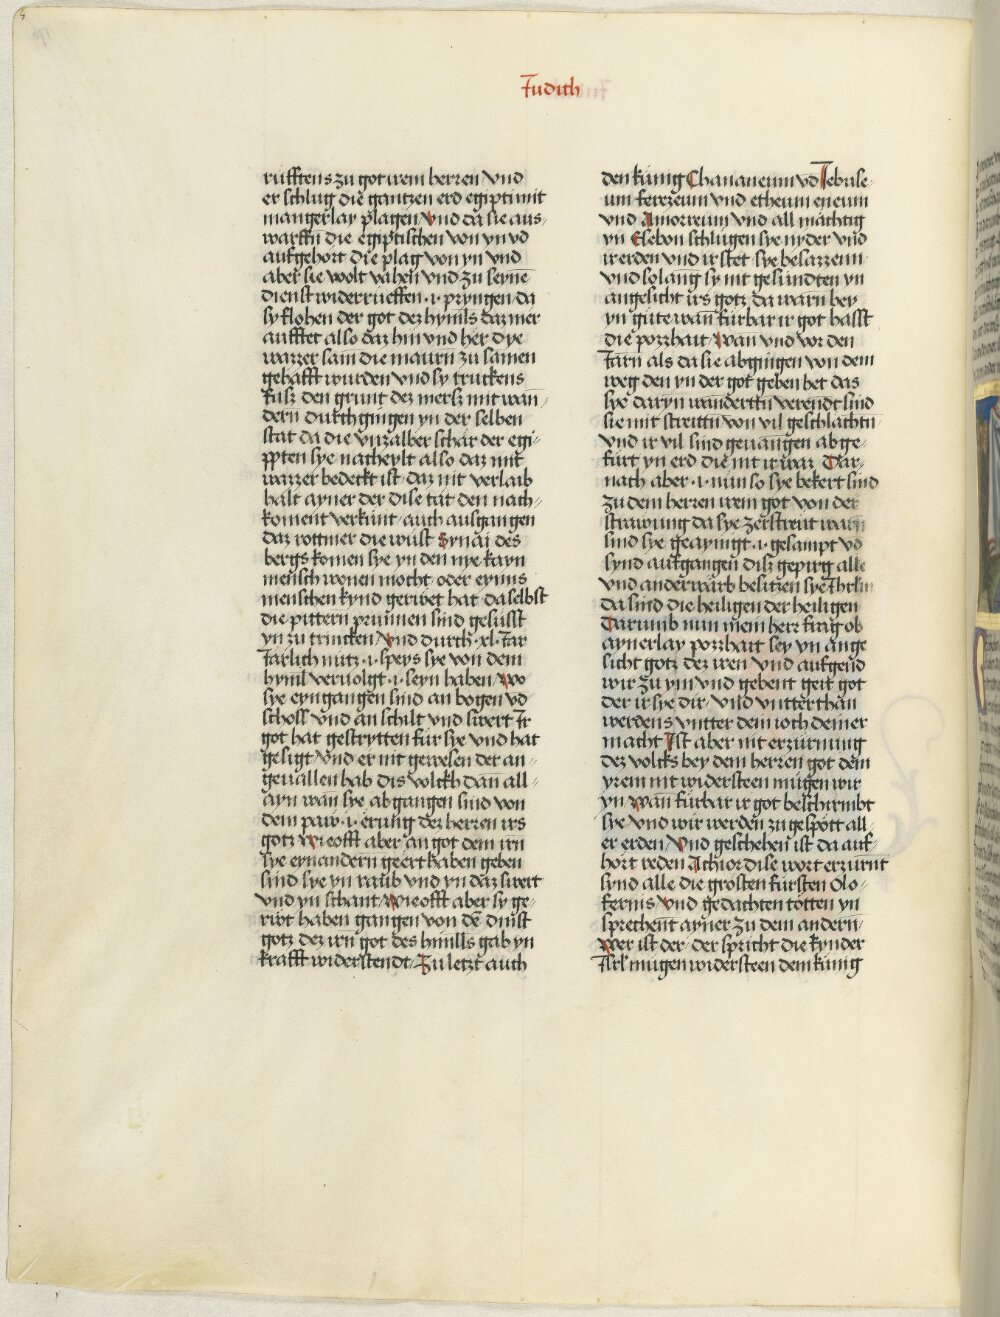 Judith
rufftens zu got irem herren vnd
er schlug die gantzen erd egipti mit
mangerlay plagen Vnd da sie aus-
warffn die egiptischen von yn vd
aufgehort die plag von yn vnd
aber sie wolt vahen vnd zu seyne
dienst widerrueffen .i. pryngen da
sy flohen der got dez hymls daz mer
aufftet also daz hin vnd her dye
wazzer sam die maurn zu samen
gehafft wurden vnd sy truckens
fusz den grunt dez mersz mit wan-
dern durchgingen yn der selben
stat da die vnzalber schar der egi-
ppten sye nacheylt also daz mit
wazzer bedeckt ist daz nit verlaib
halt ayner der dise tat den nach-
koment verkunt auch ausgangen
daz rottmer die wust Synai des
bergs komen sye yn den nye kayn
mensch wonen mocht oder eynns
menschen kynd gerwet hat daselbst
die pittern prunnen sind gesusst
yn zu trincken Vnd durch .xl. Jar
Jarlich nutz .i. speys sye von dem
hyml vervolgt .i. seyn haben Wo
sye eyngangen sind an bogen vd
schoss vnd an schilt vnd swert Jr
got hat gestrytten fur sye vnd hat
gesigt vnd er nit gewesen der an-
geuallen hab dis volckh dan all-
ayn wan sye abgangen sind von
dem paw .i. erung dez herren irs
gotz Wieofft aber an got dem irn
sye eynandern geert haben geben
sind sye yn raub vnd yn daz swert
vnd yn schant Wieofft aber sy ge-
riwt haben gangen von de dinst
gotz dez irn got des himls gab yn
krafft widerstendt Zu letzt auch
den kunig Chananeum vd Jebuse-
um ferezeum vnd etheum eneum
vnd Amorreum vnd all machtig
yn Esebon schlugen sye nyder vnd
ir erden vnd ir stet sye besazzenn
vnd solang sy nit gesundten yn
angesicht irs gotz da warn bey
yn gute wan furbar ir got hasst
die pozzhait Wan vnd vor den
Jarn als da sie abgingen von dem
weg den yn der got geben het das
sye daryn wandertn verendt sind
sie mit streittn von vil geschlachtn
vnd ir vil sind geuangen abge-
furt yn erd die nit ir waz Dar-
nach aber .i. nun so sye bekert sind
zu dem herren irem got von der
strawung da sye zerstreut warn
sind sye geaynigt .i. gesampt vd
synd aufgangen disz gepirg alle
vnd anderwarb besitzen sye Jhrlm
da sind die heiligen der heiligen
Darumb nun mein herr frag ob
aynerlay pozzhait sey yn ange
sicht gotz dez iren vnd aufgend
wir zu ym vnd gebent geit got
der ir sye dir vnd vntterthan
werdens vntter dem ioch deiner
macht Jst aber nit erzurnung
dez volcks bey dem herren got dem
yrem nit widersteen mugen wir
yn Wan furbar ir got beschirmbt
sye vnd wir werden zu gespott all-
er erden Vnd geschehen ist da auf-
hort reden Achior dise wort erzurnt
synd alle die grosten fursten Olo-
fernis Vnd gedachten totten yn
sprechent ayner zu dem andern
Wer ist der der spricht die kynder
Jsrl mugen widersteen dem kunig